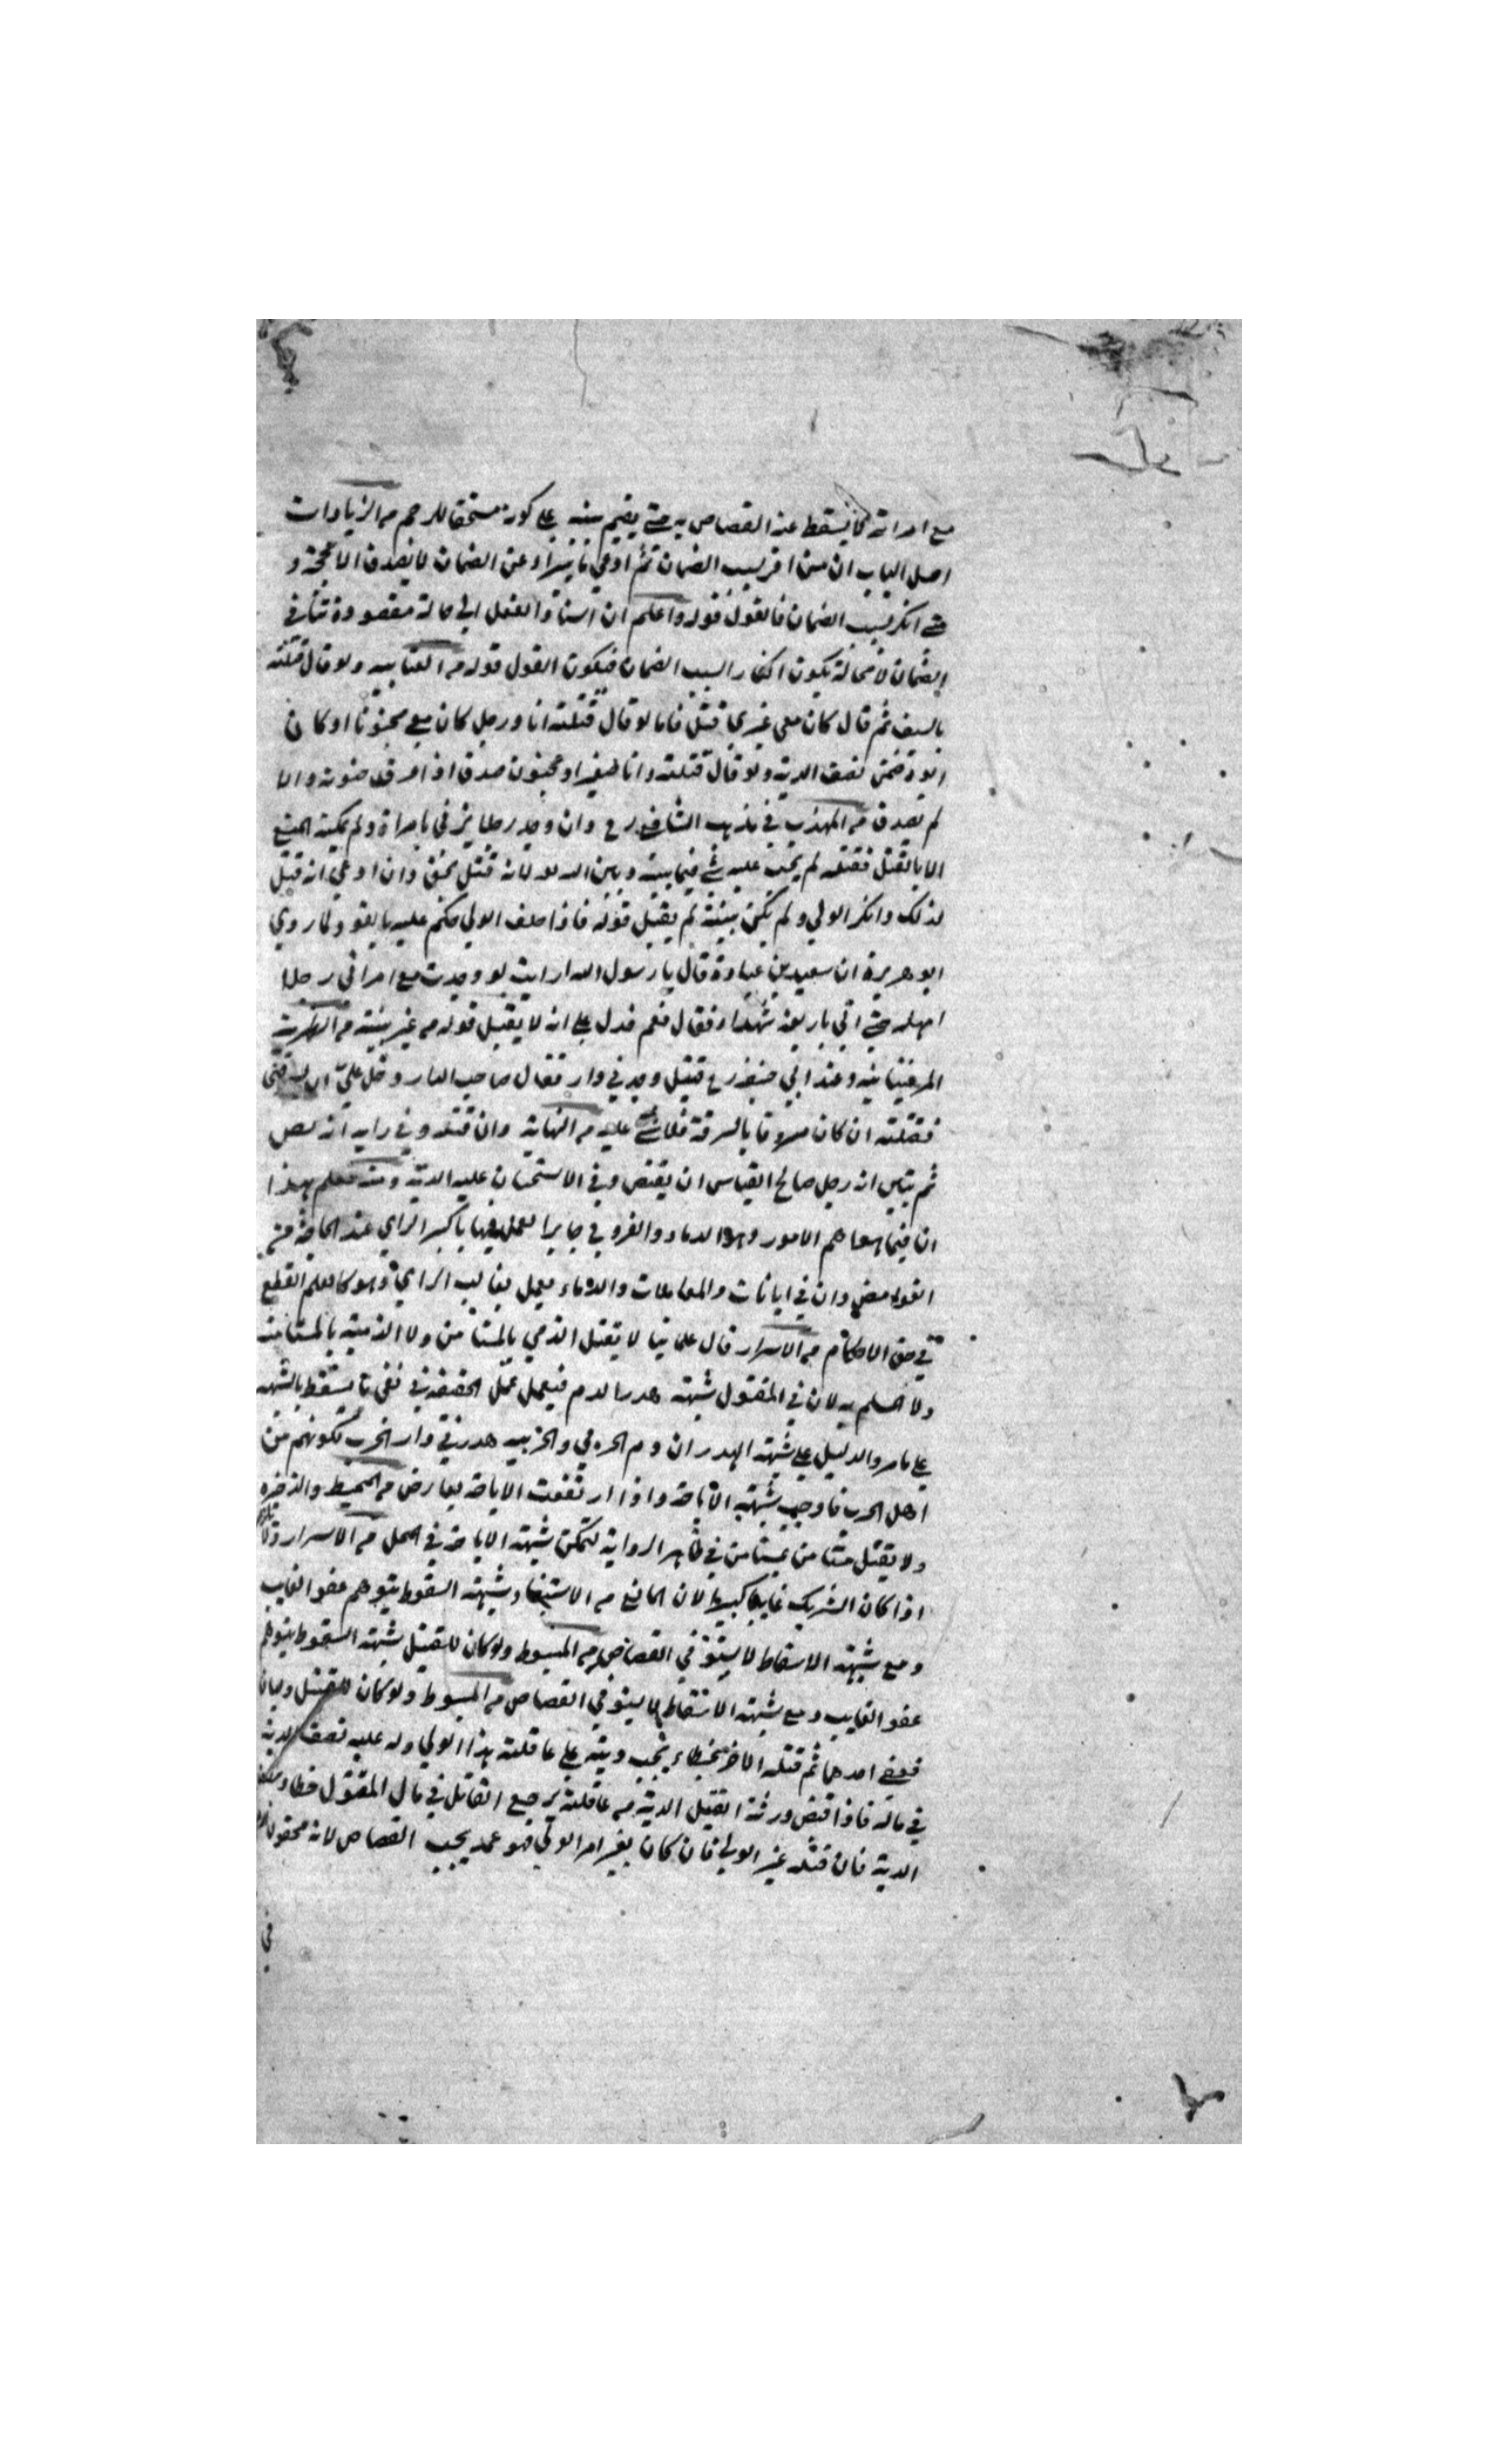 مع امراته لا يسقط عنه القصاص به حتى يقيم بينه على كونه مستحقا للرجم من الزيادات
اصل الباب ان من اقر بسبب الضمان ثم ادعى ما يبراه عن الضمان لا يصدق الا بحجة و
متى انكر بسبب الضمان فالقول قوله واعلم ان اسناد الفعل الى حالة معهودة تنافي
الضمان لا محالة يكون انكارا لسبب الضمان فيكون القول قوله من العتابيه ولو قال قتلته
بالسيف ثم قال كان معي غيري قتل فاما لو قال قتلته انا ورجل كان معي مجنونا او كان
ابوه ضمن نصف الدية ولو قال قتلته وانا صغير او مجنون صدق اذا عرف جنونه والا
لم يصدق من المهذب في مذهب الشافعي رح وان وجد رجلا يزني بامراة ولم يمكنه المنع
الا بالقتل فقتله لم يجب عليه شي فيما بينه وبين الله لانه قتل بحق وان ادعى انه قتل
لذلك وانكر الولي ولم تكن بينة لم يقبل قوله فاذا حلف الولي حكم عليه بالقود لما روي
ابو هريرة ان سعد بن عبادة قال يا رسول الله ارايت لو وجدت مع امراتي رجلا
امهله حتى اتي باربعة شهداء فقال نعم فدل على انه لا يقبل قوله من غير بينة من
المرغينانيه وعند ابي حنيفه رح قتيل وجد في دار فقال صاحب الدار دخل علي
فقتلته ان كان معروفا بالسرقة فلا شي عليه من النهاية وان قتله وفي رايه انه لص
ثم تبين انه رجل صالح القياس ان يقتص وفي الاستحسان عليه الدية ومنه يعلم بهذا
ان فيما هو اهم الامور وهو الدماء والفروج جايز العمل فيها باكبر الراي عند الحاجة
القوله وان في الديانات والمعاملات والدماء يعمل بغالب الراي وهو كالعلم القطعي
في حق الاحكام من الاسرار قال علماينا لا يقتل الذمي بالمستامن ولا الذمية بالمستامنه
ولا المسلم به لان في المقتول شبهة هدر الدم فيعمل عمل الحقيقه في نفي ما يسقط بالشبهه
على ما مر والدليل على شبهة الهدر ان دم الحربي والحربيه هدر في دار الحرب لكونهم من
اهل الحرب فاوجب شبهة الاباحة واذا ارتفعت الاباحة بعارض من المحيط والذخيره
ولا يقتل مستامن بمستامن في ظاهر الرواية لتمكن شبهة الاباحة في المحل من الاسرار
اذا كان الشريك غايبا كبيرا لان المانع من الاستيفاء شبهة السقوط بتوهم عفو الغايب
ومع شبهة الاسقاط لا يستوفي القصاص من المبسوط ولو كان للقتيل شبهة السقوط بتوهم
عفو الغايب ومع شبهة الاسقاط لا يستوفي القصاص من المبسوط ولو كان للقتيل وليان
فعفى احدهما ثم قتله الاخر خطاء يجب ديته على عاقلة هذا الولي وله عليه نصف الدية
في ماله فاذا قبض ورثة القتيل الدية من عاقلته يرجع القاتل في مال المقتول
الدية فان قتله غير الولي فان كان بغير امر الولي فهو عمد يجب القصاص لانه محقون
في